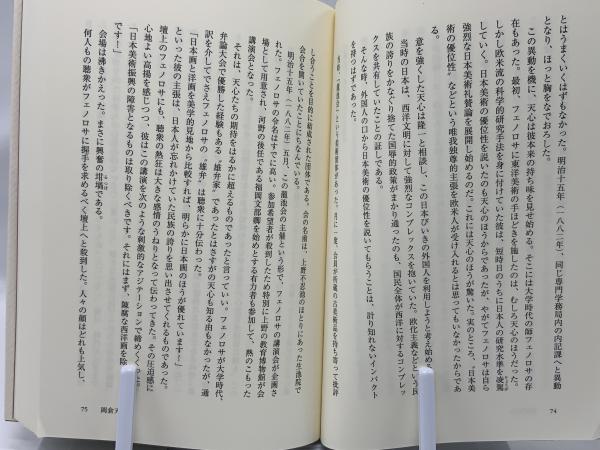 とはうまくいくはずもなかった。明治十五年（一八八二年）、同じ専門学務局内の内記課へと異動
となり、ほっと胸をなでおろした。
この異動を機に、天心は彼本来の持ち味を見せ始める。そこには大学時代の師フェノロサの存
在もあった。最初、フェノロサに東洋美術の手ほどきを施したのは、むしろ天心のほうだった。
しかし欧米流の科学的研究手法を身に付けていた彼は、短時日のうちに日本人の研究水準を凌駕
していく。日本美術の優位性を説いたのも天心のほうからであったが、やがてフェノロサは自ら
強烈な日本美術礼賛論を展開し始めるのだ。これには天心のほうが驚いた。実のところ、〝日本美
術の優位性〟などという唯我独尊的主張を欧米人が受け入れるとは思ってもいなかったからであ
る。
意を強くした天心は隆一と相談し、この日本びいきの外国人を利用しようと考え始め
当時の日本は、西洋文明に対して強烈なコンプレックスを抱いていた。欧化主義などという民
族の誇りをかなぐり捨てた国辱的政策がまかり通ったのも、国民全体が西洋に対するコンプレッ
クスを共有していたことの証しである。
そんな時代、外国人の口から日本美術の優位性を説いてもらうことは、計り知れないインパクト
を持つはずである。
という美術団体があった。月に一度、会員が所蔵の古美術品を持ち寄って批評
し合うことを目的に結成された団体である。会の名前は、上野不忍池のほとりにあった生池院で
会合を開いていたことにちなんでいる。
明治十五年（一八八二年）五月、この龍池会の主催という形で、フェノロサの講演会が企画さ
れた。フェノロサの令名はすでに高い。参加希望者が殺到したため特別に上野の教育博物館が会
場として用意され、河野の後任である福岡文部卿を始めとする有力者も参加して、熱のこもった
講演会となった。
それは、天心たちの期待をはるかに超えるものであったと言っていい。フェノロサが大学時代、
弁論大会で優勝した経験もある〝雄弁家〟であったとはさすがの天心も知る由もなかったが、通
訳を介してでさえフェノロサの〝雄弁〟は聴衆に十分伝わった。
「日本画と洋画を美学的見地から比較すれば、明らかに日本画のほうが優れています！」
といった彼の主張は、日本人が忘れかけていた民族の誇りを思い出させてくれるものであった。
壇上のフェノロサにも、聴衆の熱狂は大きな感情のうねりとなって伝わってきた。その圧迫感に
心地よい高揚を感じつつ、彼はこの講演を次のような刺激的なアジテーションで締めくくった。
「日本美術振興の障害となるものは取り除くべきです。それにはまず、陳腐な西洋画を除
です！」
会場は沸きかえった。まさに興奮の坩堝である。
何人もの聴衆がフェノロサに握手を求めるべく壇上へと殺到した。人々の顔はどれも上気し、
74
75 岡倉天